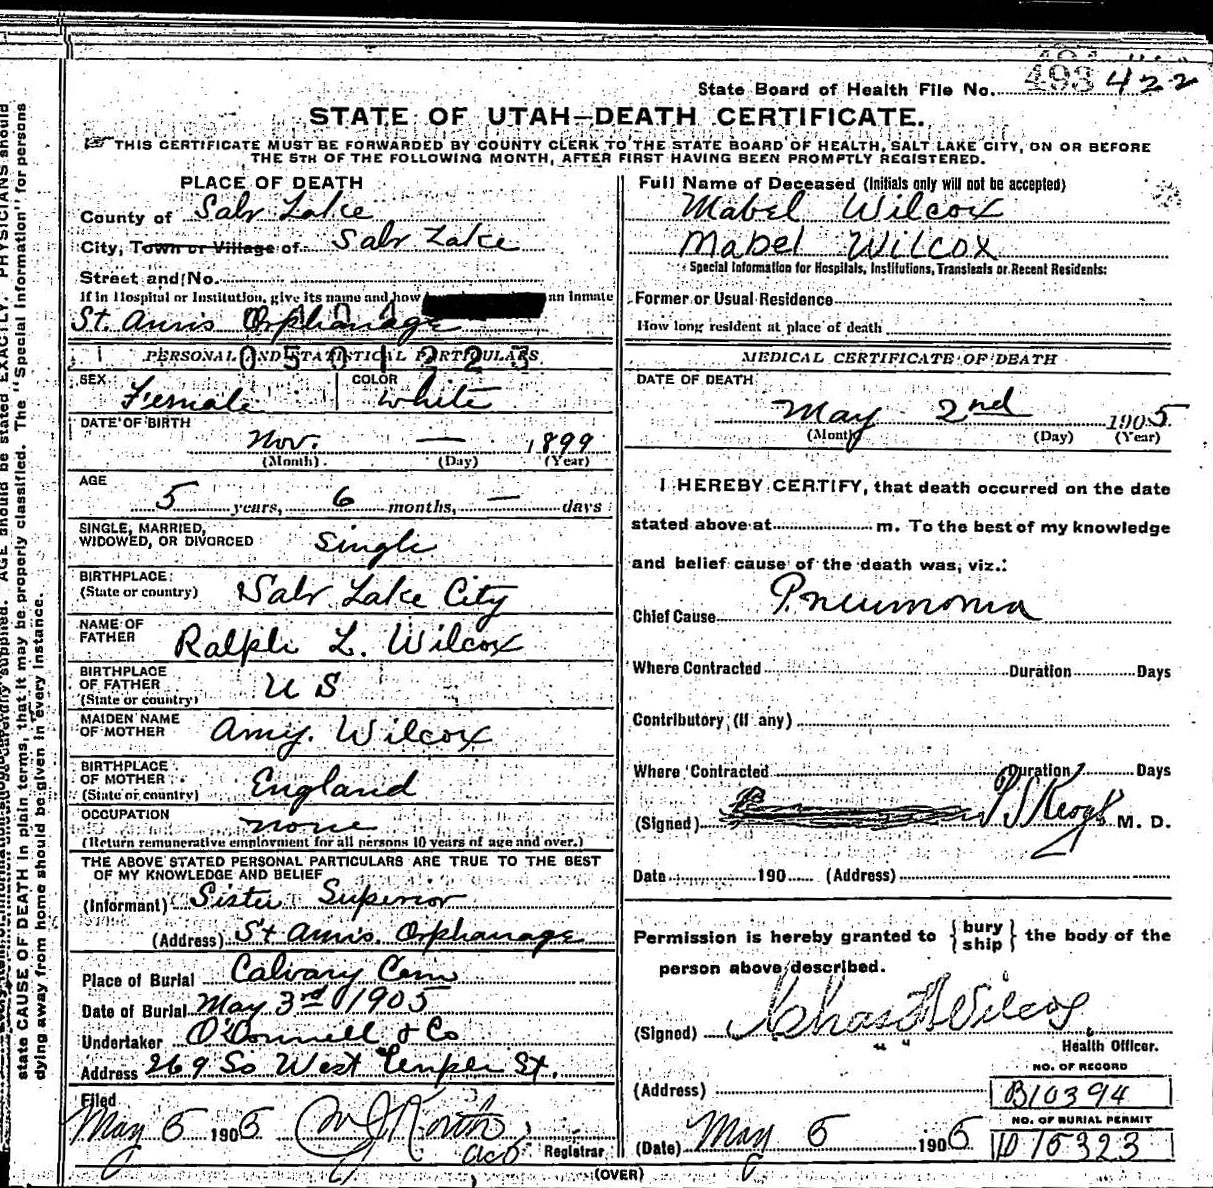 State Board of Health File No. 493 422
STATE OF UTAH—DEATH CERTIFICATE.
THIS CERTIFICATE MUST BE FORWARDED BY COUNTY CLERK TO THE STATE BOARD OF HEALTH, SALT LAKE CITY, ON OR BEFORE
THE 5TH OF THE FOLLOWING MONTH, AFTER FIRST HAVING BEEN PROMPTLY REGISTERED.
PLACE OF DEATH
County of Salt Lake
City, Town or Village of Salt Lake
Street and No.
If in Hospital or Institution, give its name and how an inmate
St. Ann's Orphanage
PERSONAL AND STATISTICAL PARTICULARS.
0501223
SEX Female COLOR White
DATE OF BIRTH
Nov. — 1899
(Month) (Day) (Year)
AGE
5 years, 6 months, — days
SINGLE, MARRIED,
WIDOWED, OR DIVORCED Single
BIRTHPLACE:
(State or country) Salt Lake City
NAME OF
FATHER Ralph L. Wilcox
BIRTHPLACE
OF FATHER
(State or country) U S
MAIDEN NAME
OF MOTHER Amy. Wilcox
BIRTHPLACE
OF MOTHER
(State or country) England
OCCUPATION none
(Return remunerative employment for all persons 10 years of age and over.)
THE ABOVE STATED PERSONAL PARTICULARS ARE TRUE TO THE BEST
OF MY KNOWLEDGE AND BELIEF
(Informant) Sister Superior
(Address) St Ann's. Orphanage
Place of Burial Calvary Cem
Date of Burial May 3rd 1905
Undertaker O'Donnell & Co
Address 269 So West Temple St.
Filed
May 6 1905
Registrar
Full Name of Deceased (Initials only will not be accepted)
Mabel Wilcox
Mabel Wilcox
Special Information for Hospitals, Institutions, Transients or Recent Residents:
Former or Usual Residence
How long resident at place of death
MEDICAL CERTIFICATE OF DEATH
DATE OF DEATH
May 2nd 1905
(Month) (Day) (Year)
I HEREBY CERTIFY, that death occurred on the date
stated above at m. To the best of my knowledge
and belief cause of the death was, viz.:
Chief Cause Pneumonia
Where Contracted Duration Days
Contributory (if any)
Where Contracted Duration Days
(Signed) Keogh M. D.
Date 190 (Address)
Permission is hereby granted to {bury
ship} the body of the
person above described.
(Signed) Chas Wilcox
" "
Health Officer.
NO. OF RECORD
(Address) B10394
NO. OF BURIAL PERMIT
(Date) May 6 1905 D15323
(OVER)
state CAUSE OF DEATH in plain terms, that it may be properly classified. The "Special Information" for persons
dying away from home should be given in every instance.